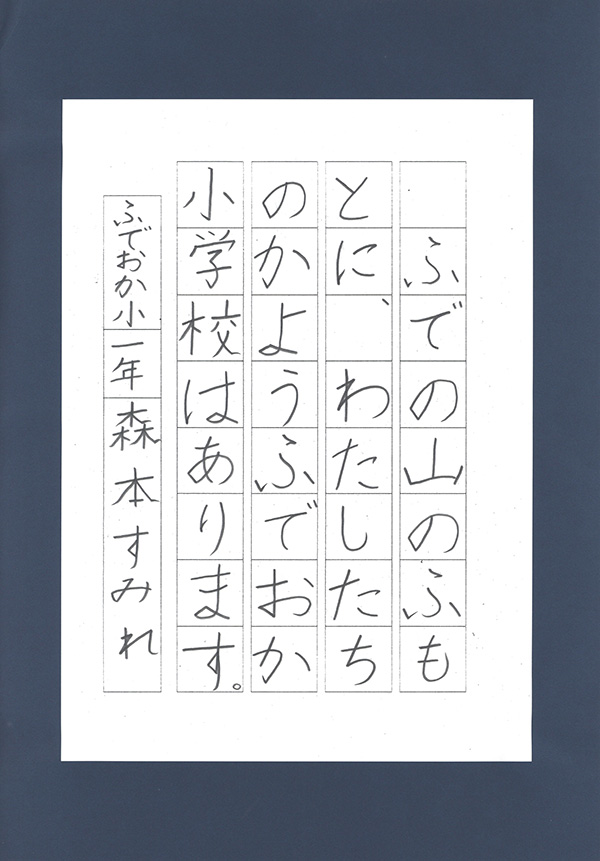 ふでの山のふも
とに、わたしたち
のかようふでおか
小学校はあります。
ふでおか小一年森本すみれ